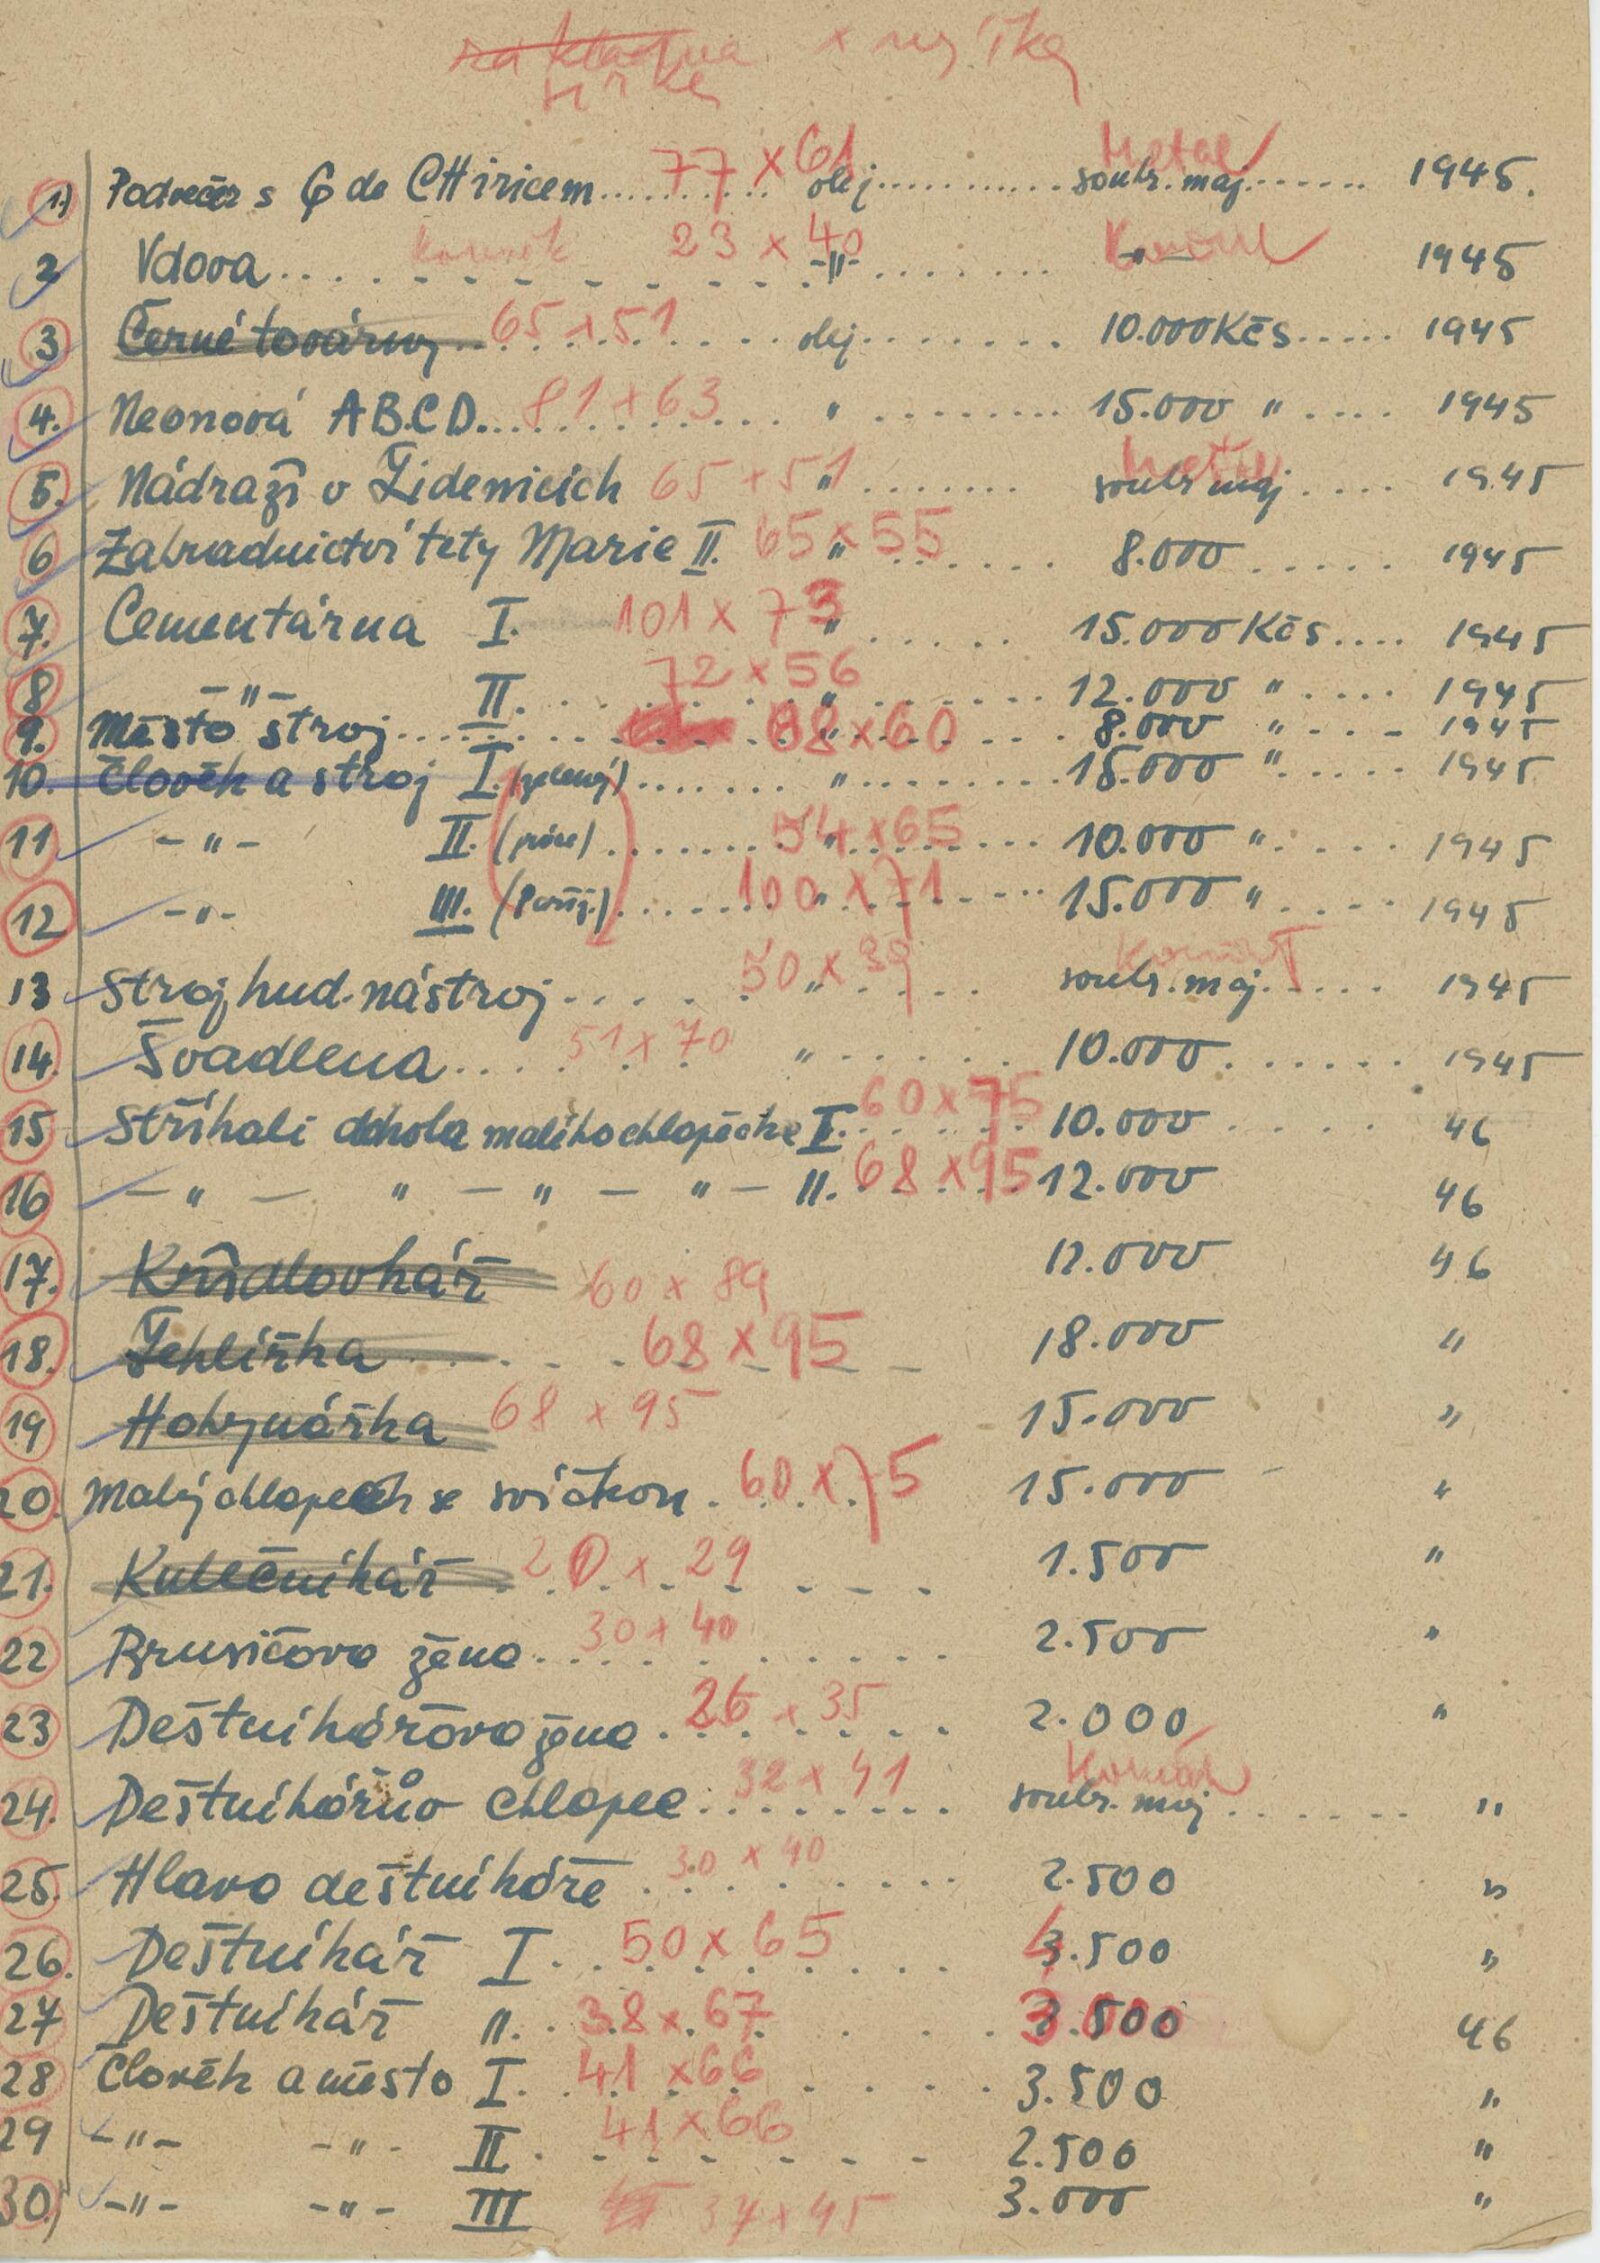 základna x výška
šířka
1) Podvečer s G de CHiricem.......... 77 x 61 olej........... soukr. maj....... 1945.
2 Vdova.... 23 x 40 -"- ....... -"- 1945
3 Černé továrny... 65 x 51 olej........ 10.000 Kčs..... 1945
4. Neonová A.B.C.D..... 81 x 63 " ......... 15.000 " .... 1945
5. Nádraží v Židenicích 65 x 51 " ........ soukr maj .... 1945
6 Zahradnictví tety Marie II. 65 x 55 " ...... 8.000 ..... 1945
7. Cementárna I. 101 x 73 " ..... 15.000 Kčs.... 1945
8 -"- II. ... 72 x 56 " ....... 12.000 " .... 1945
9. Město stroj........ 88 x 60 " ...... 8.000 " - - - 1945
10. Člověk a stroj I. (zelený)....... " ......... 15.000 " ..... 1945
11 -"- II. (práce)........ 54 x 65 " ........ 10.000 " .... 1945
12 -"- III. (Paříž.)....... 100 x 71 " ........ 15.000 " .... 1945
13 Stroj hud. nástroj..... 50 x 39 " .... soukr. maj...... 1945
14. Švadlena.... 51 x 70 " ...... 10.000 ...... 1945
15 Stříhali dohola malého chlapečka I. 60 x 75 ...... 10.000 ..... 46
16 - " - " - " - " - II. 68 x 95 .... 12.000 46
17. Křídlovkář 60 x 89 12.000 46
18. Žehlířka ..... 68 x 95 18.000 "
19 Hokynářka 68 x 95 15.000 "
20. Malý chlapeček se svíčkou . 60 x 75 15.000 - "
21. Kulečníkář 20 x 29 ...... 1.500 "
22 Brusičova žena 30 x 40 .......... 2.500 "
23 Deštníkářova žena . 26 x 35 ...... 2.000 "
24. Deštníkářův chlapec 32 x 41 ........ soukr. maj ...... "
25. Hlava deštníkáře 30 x 40 ........ 2.500 "
26. Deštníkář I. 50 x 65 ........ 4 3.500 "
27 Deštníkář II. 38 x 67 ...... 3.500 46
28 Člověk a město I. 41 x 66 ........ 3.500 "
29 -"- -"- II. 41 x 66 ....... 2.500 "
30) -"- -"- III 37 x 45 3.000 "